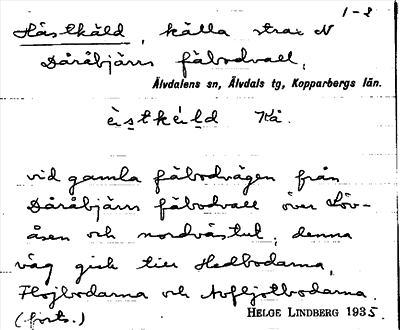 1-2
Hästkäld, källa strax N
Dåråbjärs fäbodvall,
Älvdalens sn, Älvdals tg, Kopparbergs län.
Kå.
vid gamla fäbodvägen från
Dåråbjärs fäbodvall över Löv-
åsen och nordvästut, denna
väg gick till Hedbodarna,
Flöjbodarna och
(forts.) HELGE LINDBERG 1935.